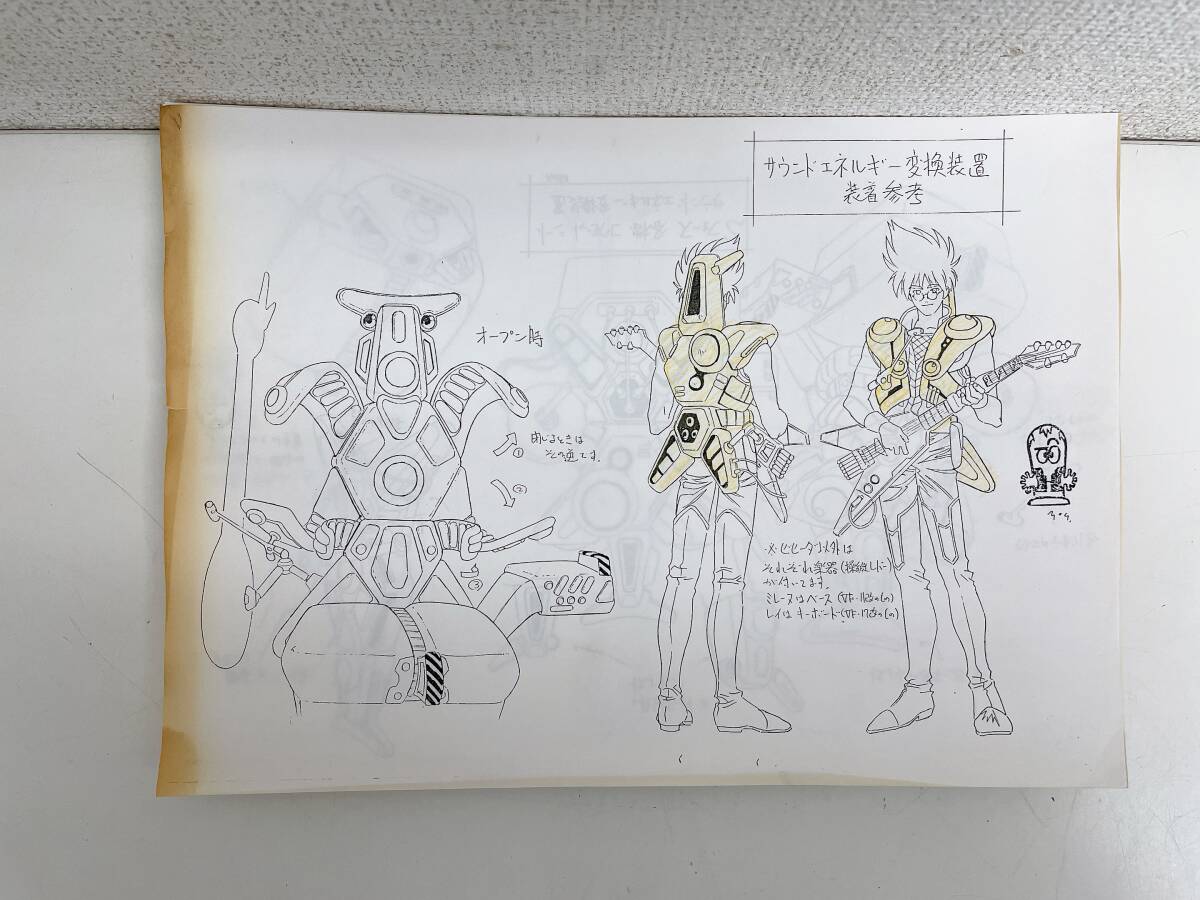 サウンドエネルギー変換装置
装着参考
オープン時
閉じるときは
その逆です。
①
②
③
※ビヒーダ以外は
それぞれ楽器(操縦レバー)
が付いてます。
ミレーヌはベース(VF-11改のもの)
レイはキーボード(VF-17改のもの)